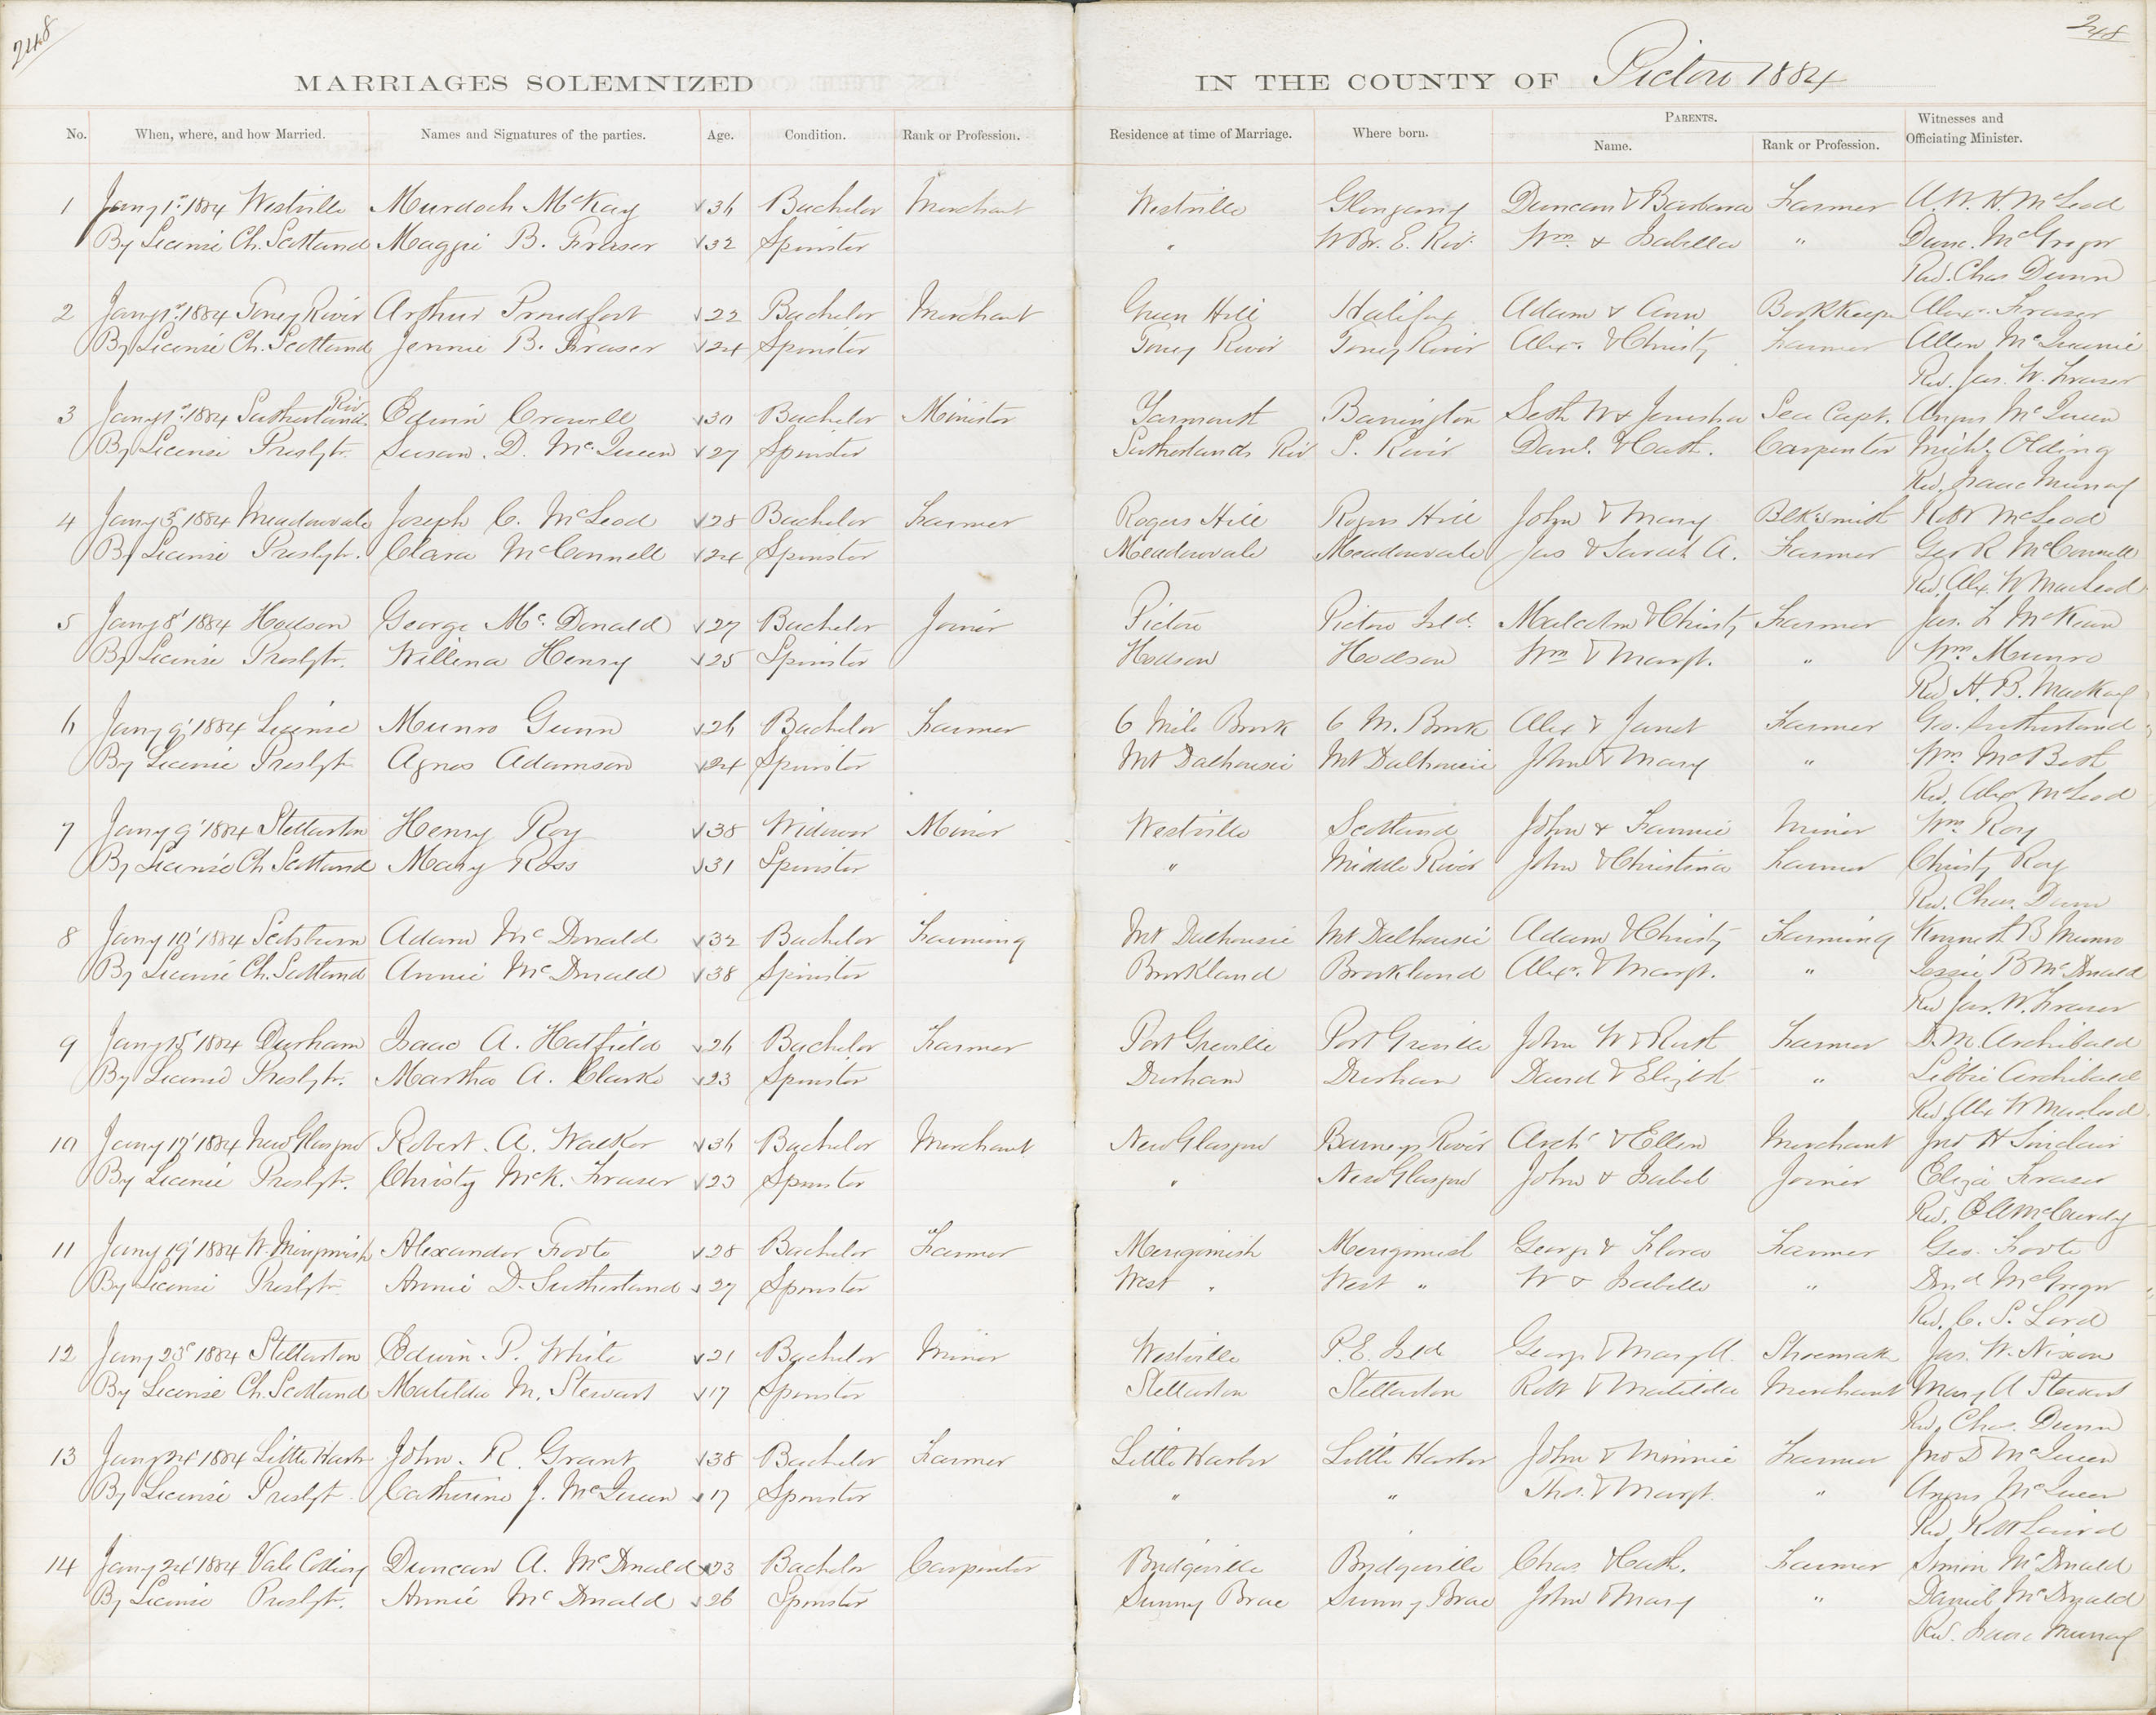 248
248
MARRIAGES SOLEMNIZED IN THE COUNTY OF Pictou 1884
No. When, where, and how Married. Names and Signatures of the parties. Age. Condition. Rank or Profession. Residence at time of Marriage. Where born. PARENTS. Name. Rank or Profession. Witnesses and Officiating Minister.
1 Jany 1st 1884 Westville Murdoch McKay 36 Bachelor Merchant Westville Glengarry Duncan & Barbara Farmer A. W. H. McLeod
By License Ch. Scotland Maggie B. Fraser 32 Spinster " W. Br. E. Riv. Wm. & Isabella " Dunc. McGregor
Rev. Chas Dunn
2 Jany 1st 1884 Toney River Arthur Proudfoot 22 Bachelor Merchant Green Hill Halifax Adam & Ann BookKeeper Alexr. Fraser
By License Ch. Scotland Jennie B. Fraser 24 Spinster Toney River Toney River Alexr. & Christy Farmer Allen McQuarrie
Rev. Jas. W. Fraser
3 Jany 1st 1884 Sutherlands Riv Edwin Crowell 30 Bachelor Minister Yarmouth Barrington Seth W & Jerusha Sea Capt. Angus McQueen
By License Presbytr. Susan. D. McQueen 27 Spinster Sutherlands Riv S. River Danl. & Cath. Carpenter Michl. Olding
Rev. Isaac Murray
4 Jany 3rd 1884 Meadowvale Joseph C. McLeod 28 Bachelor Farmer Rogers Hill Rogers Hill John & Mary BlkSmith Robt McLeod
By License Presbytr. Clara McConnell 24 Spinster Meadowvale Meadowvale Jas & Sarah A. Farmer Geo R. McConnell
Rev. Alex. W MacLeod
5 Jany 8' 1884 Hodson George McDonald 27 Bachelor Joiner Pictou Pictou Isld. Malcolm & Christy Farmer Jas. L McKean
By License Presbytr. Willena Henry 25 Spinster Hodson Hodson Wm & Margt. " Wm. Munro
Rev H. B. MacKay
6 Jany 9' 1884 License Munro Gunn 26 Bachelor Farmer 6 Mile Brook 6 M. Brook Alex & Janet Farmer Geo. Sutherland
By License Presbytr Agnes Adamson 24 Spinster Mt Dalhousie Mt Dalhousie John & Mary " Wm. McBeth
Rev. Alex McLeod
7 Jany 9' 1884 Stellarton Henry Roy 38 Widower Miner Westville Scotland John & Fannie Miner Wm. Roy
By License Ch Scotland Mary Ross 31 Spinster " Middle River John & Christina Farmer Christy Roy
Rev. Chas. Dunn
8 Jany 10' 1884 Scotsburn Adam McDonald 32 Bachelor Farming Mt Dalhousie Mt Dalhousie Adam & Christy Farming Kenneth B Munro
By License Ch. Scotland Annie McDonald 38 Spinster Brookland Brookland Alexr. & Margt. " Jessie B McDonald
Rev Jas. W. Fraser
9 Jany 15' 1884 Durham Isaac A. Hatfield 26 Bachelor Farmer Port Greville Port Greville John W & Ruth Farmer D. M. Archibald
By License Presbytr. Martha A. Clarke 23 Spinster Durham Durham David & Elizbth " Libbie Archibald
Rev. Alex W MacLeod
10 Jany 17' 1884 New Glasgow Robert. A. Walker 36 Bachelor Merchant New Glasgow Barneys River Archd & Ellen Merchant Jno H Sinclair
By License Presbytr. Christy McK. Fraser 23 Spinster " New Glasgow John & Isabel Joiner Eliza Fraser
Rev. E A McCurdy
11 Jany 19' 1884 W. Merigomish Alexander Foote 28 Bachelor Farmer Merigomish Merigomish George & Flora Farmer Geo. Foote
By License Presbytr Annie D. Sutherland 27 Spinster West " West " W & Isabella " Dnd McGregor
Rev. C. S. Lord
12 Jany 23rd 1884 Stellarton Edwin. P. White 21 Bachelor Miner Westville P. E. Isld George & Mary A. Shoemaker Jas. W. Nixon
By License Ch. Scotland Matilda M. Stewart 17 Spinster Stellarton Stellarton Robt & Matilda Merchant Mary A Stewart
Rev. Chas. Dunn
13 Jany 24' 1884 Little Harbr John. R. Grant 38 Bachelor Farmer Little Harbor Little Harbor John & Minnie Farmer Jno D McQueen
By License Presbyt. Catherine J. McQueen 17 Spinster " " Thos. & Margt. " Angus McQueen
Rev. Robt Laird
14 Jany 24' 1884 Vale Colliery Duncan A. McDonald 23 Bachelor Carpenter Bridgeville Bridgeville Chas. & Cath. Farmer Simon McDonald
By License Presbytr. Annie McDonald 26 Spinster Sunny Brae Sunny Brae John & Mary " Daniel McDonald
Rev. Isaac Murray